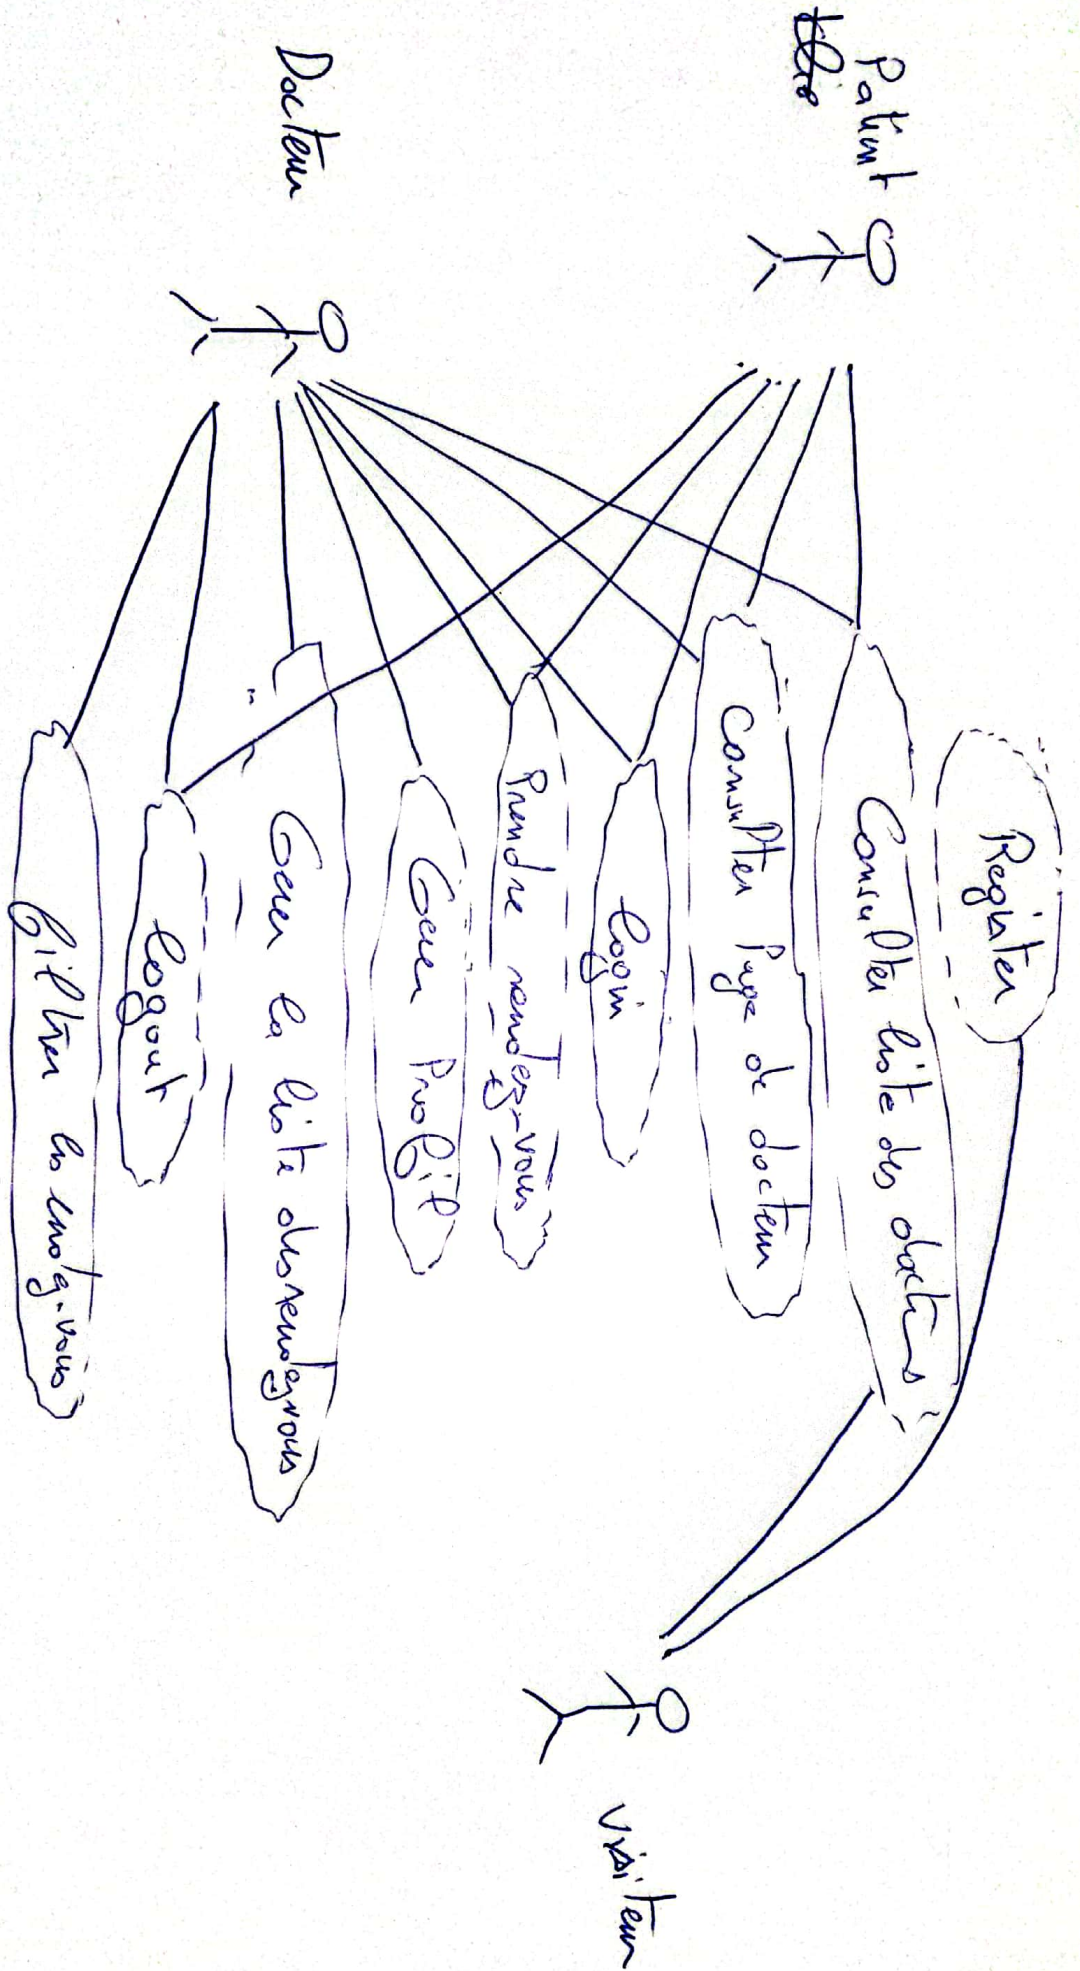 Patient
Docteur
Register
Consulter liste des docteurs
Consulter Page de docteur
login
Prendre rendez-vous
Gerer Profil
Gerer la liste des rendez vous
logout
filtrer les rendez-vous
visiteur